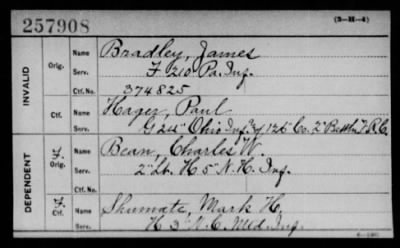 257908 (3-H-4)
INVALID
Orig. Name Bradley, James
Serv. F 210 Pa. Inf.
Ctf. No. 374825
Ctf. Name Hager, Paul
Serv. G 24" Ohio Inf. & 125" Co. 2" Battln V.R.C.
DEPENDENT
F. Orig. Name Bean, Charles W.
Serv. 2" Lt. H 5" N.H. Inf.
Ctf. No.
F. Ctf. Name Shumate, Mark H.
Serv. H 3" N.C. Mtd. Inf.